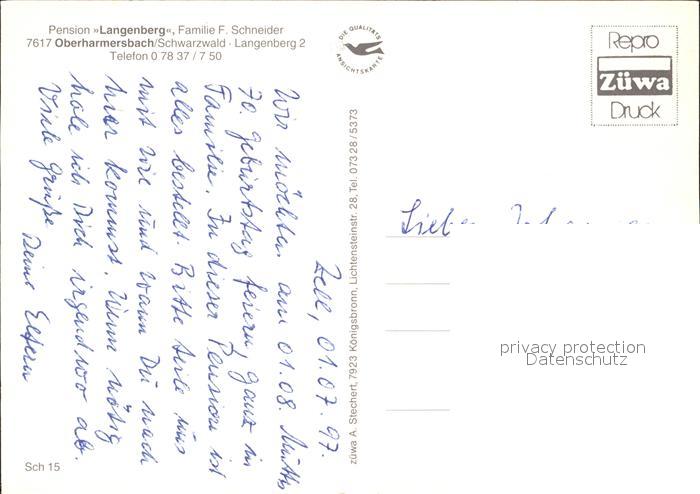 Pension »Langenberg«, Familie F. Schneider
7617 Oberharmersbach/Schwarzwald · Langenberg 2
Telefon 0 78 37 / 7 50
DIE QUALITÄTS
ANSICHTSKARTE
Repro
Züwa
Druck
Zell, 01.07.97.
Wir möchten am 01.08. Muttis
70. Geburtstag feiern, ganz in
Familie. In dieser Pension ist
alles bestellt. Bitte teile uns
mit wie und wann Du nach
hier kommst. Wenn nötig
hole ich Dich irgendwo ab.
Viele Grüße
Deine Eltern
züwa A. Stechert, 7923 Königsbronn, Lichtensteinstr. 28, Tel. 07328/5373
Lieber
privacy protection
Datenschutz
Sch 15